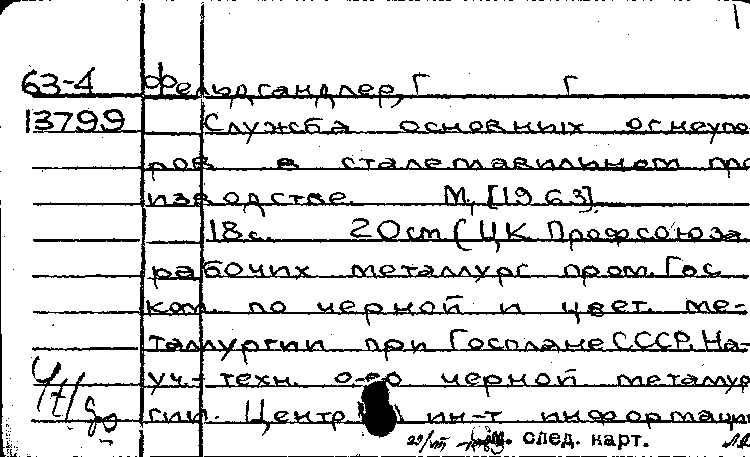 63-4 Фельдгандлер, Г Г
13799 Служба основных огнеупо
ров в сталеплавильном про
изводстве. М, [1963].
18с. 20см (ЦК Профсоюза
рабочих металлург пром. Гос
ком. по черной и цвет. ме-
таллургии при Госплане СССР. На-
уч-техн. о-во черной металлур
гии. Центр ин-т информаци
см. след. карт.